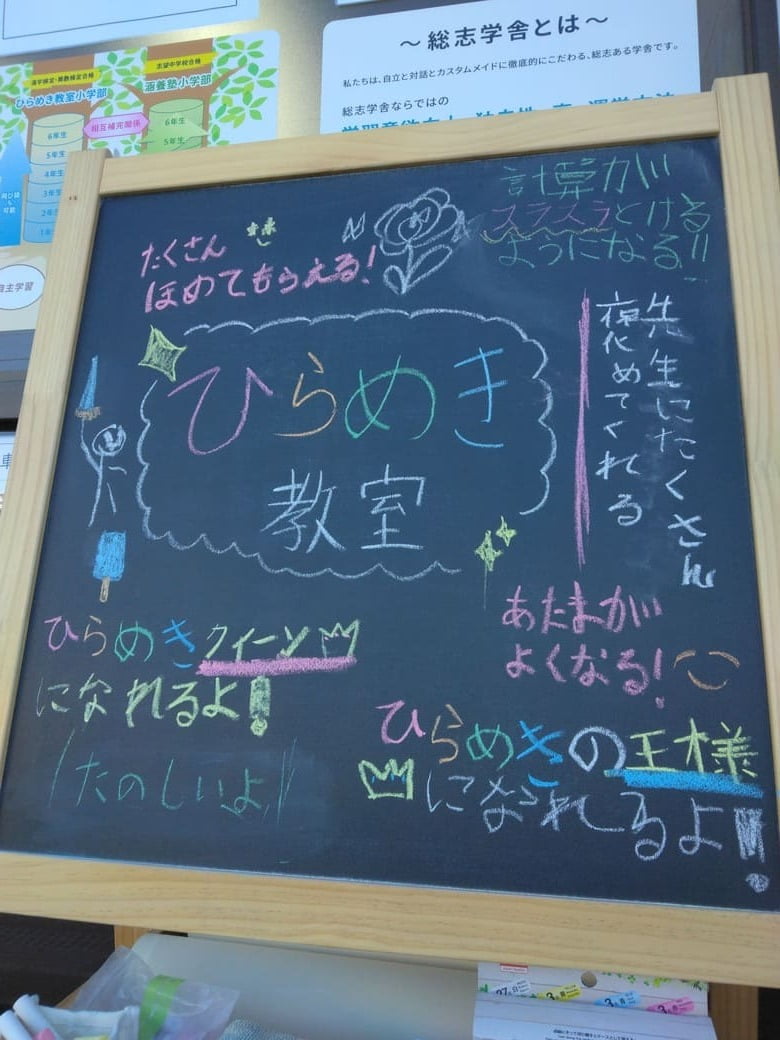 〜 総志学舎とは 〜
私たちは、自立と対話とカスタムメイドに徹底的にこだわる、総志ある学舎です。
総志学舎ならではの
漢字検定・算数検定合格
ひらめき教室小学部
志望中学校合格
涵養塾小学部
相互補完関係
6年生
5年生
4年生
3年生
2年生
1年生
6年生
5年生
自主学習
計算力が
スラスラとける
ようになる!!
たくさん
ほめてもらえる!
先生にたくさん
褒めてくれる
ひらめき
教室
あたまが
よくなる!
ひらめきクイーン
になれるよ!
ひらめきの王様
になれるよ!!
たのしいよ!!